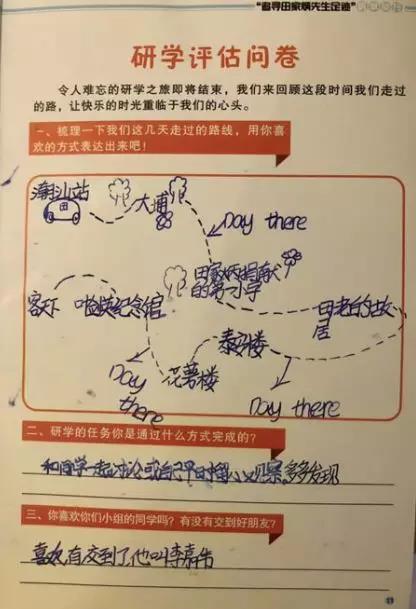 “追寻田家炳先生足迹”
研学评估问卷
令人难忘的研学之旅即将结束，我们来回顾这段时间我们走过
的路，让快乐的时光重临于我们的心头。
一、梳理一下我们这几天走过的路线，用你喜
欢的方式表达出来吧！
潮汕站
大埔
Day there
田家炳捐献
的第一小学
田老的故
居
客天下
纪念馆
泰安楼
花萼楼
Day
there
Day there
二、研学的任务你是通过什么方式完成的？
和同学一起讨论或自己平时留心观察,多多发现
三、你喜欢你们小组的同学吗？有没有交到好朋友？
喜欢,有交到了,他叫李嘉